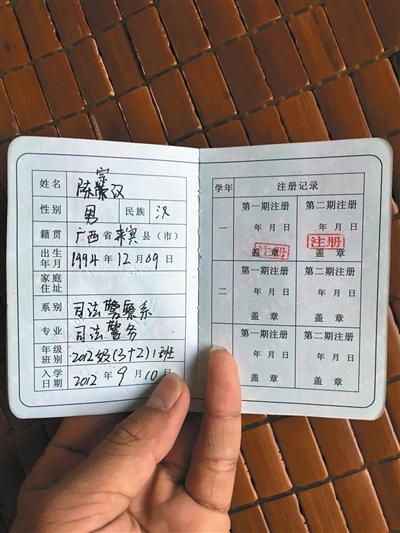 姓名 陈宗汉
性别 男 民族 汉
籍贯 广西省来宾县(市)
出生年月 1994年12月09日
家庭住址
系别 司法警察系
专业 司法警务
年级班别 2012级(3+2)1班
入学日期 2012年9月10日
学年 注册记录
一 第一期注册 年月日 盖章 注册
第二期注册 年月日 注册 盖章
二 第一期注册 年月日 盖章
第二期注册 年月日 盖章
第一期注册 年月日 盖章
第二期注册 年月日 盖章